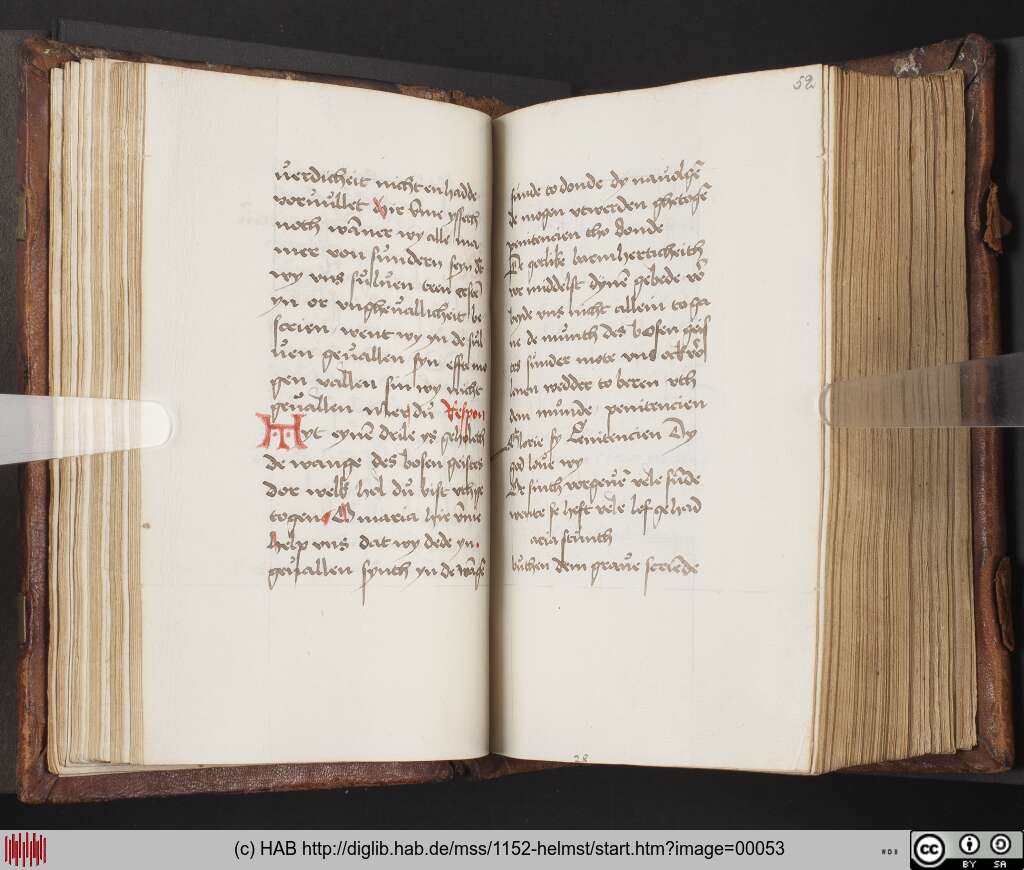 verdicheit nicht en hadde
vorvullet hir vm̄e
noch wām̄er wy alle
mer von sundern syn
wy vns suluen
yn or vngheuallicheit be
screien went wy yn de sul
uen geuallen syn effte mo
gen vallen sin wy nicht
geuallen mer du Respon
Hyt eynē deile ys gehoketh
de wange des bosen geistes
dor welk hel du bist vthge
togen O maria hir vm̄e
help vns dat wy dede yn
geuallen synth yn de
52
sunde to donde dy nauolgē
de mogen vtwerden
penitencien tho donde
De barmherticheith
we middelst dynē gebede
bede vns nicht allein to ga
ne de munth des bosen geis
tes sunder mote vns ock
wedder to beren vth
dem munde penitencien
Glorie sy Penitencien Dy
god loue wy
De sinth vorgeuē vele sūde
wente se heft vele lef gehad
aria stunth
buthen dem graue screiēde
28
(c) HAB http://diglib.hab.de/mss/1152-helmst/start.htm?image=00053
WDB
cc
BY SA